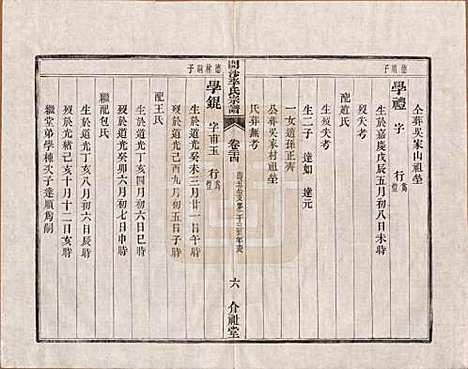 公葬吳家山祖塋
德順子
學禮 字 行
生於嘉慶戊辰五月初八日辰時
歿失考
配趙氏
生歿失考
生二子 達如 達元
一女適孫正齊
公葬吳家村祖塋
氏葬無考
李氏宗譜
卷二十四
六
介祉堂
德林嗣子
學錕 字甫玉 行
生於道光癸未三月廿一日午時
歿於道光己酉九月初五日子時
配王氏
生於道光丁亥四月初六日巳時
歿於道光癸卯六月初七日申時
繼配包氏
生於道光丁亥八月初六日辰時
歿於光緒己亥十月十二日亥時
繼堂弟學棟次子達順爲嗣